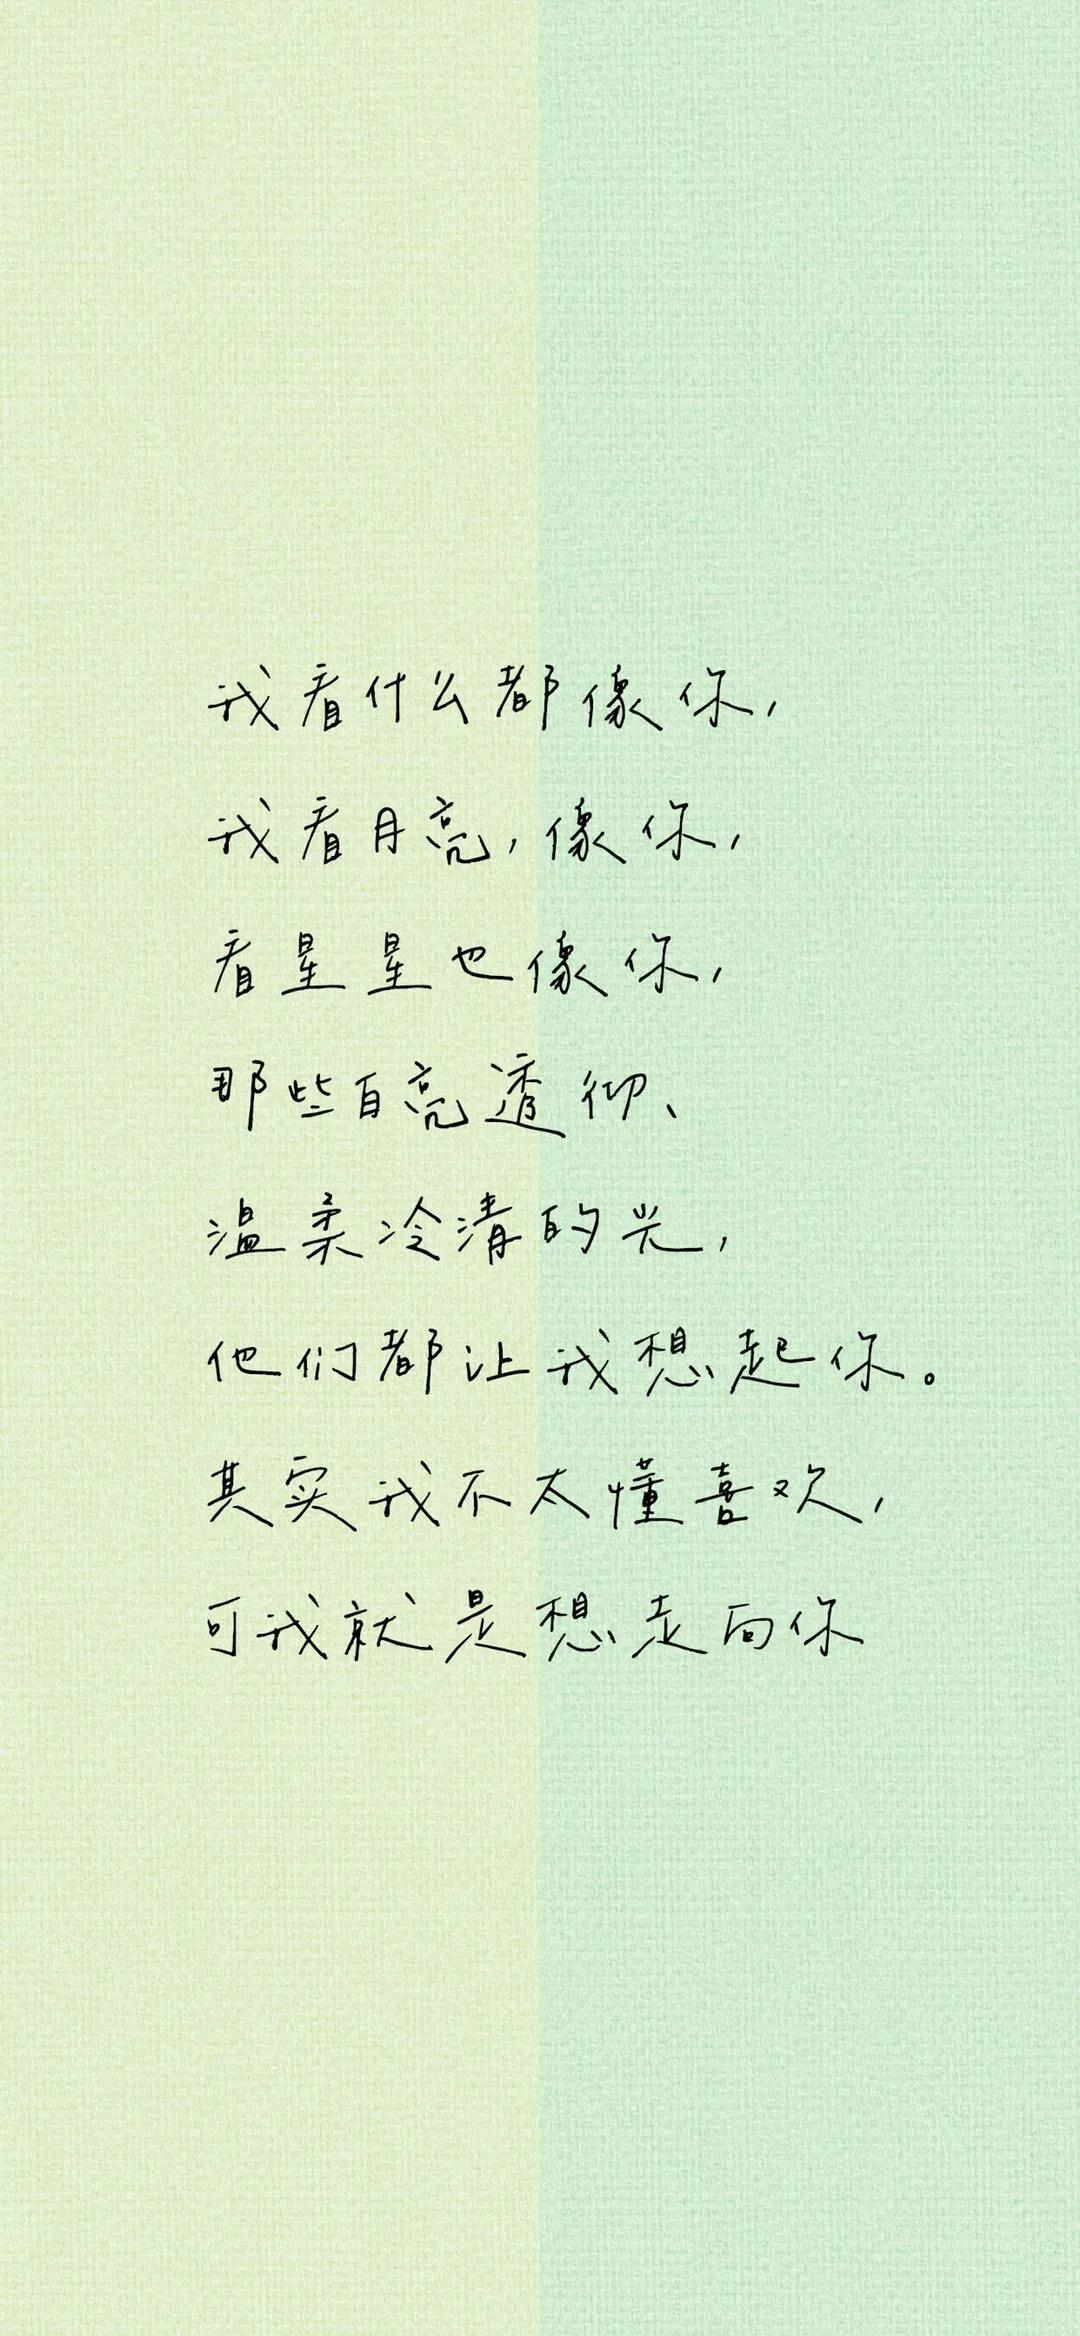 我看什么都像你，
我看月亮，像你，
看星星也像你，
那些白亮透彻、
温柔冷清的光，
他们都让我想起你。
其实我不太懂喜欢，
可我就是想走向你